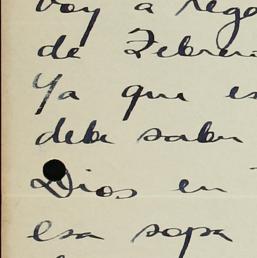 voy a rega
de Febrer
Ya que es
debe saber
Dios en
esa sopa